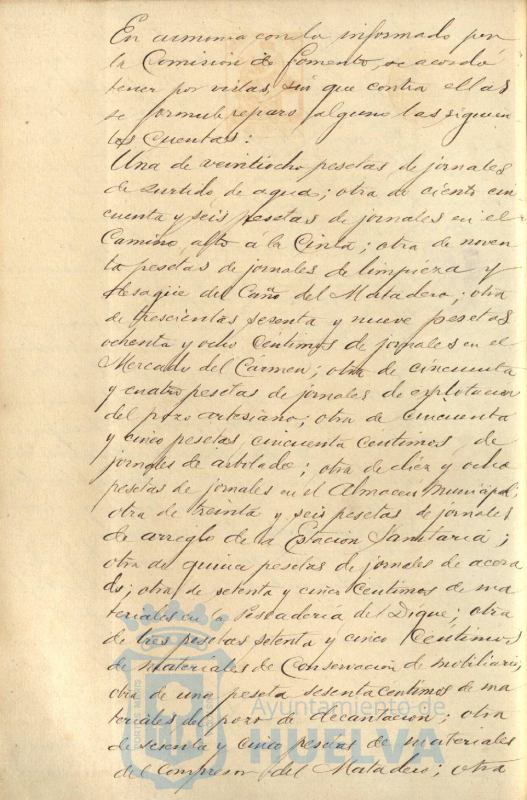 En armonia con lo informado por
la Comision de fomento, se acordó
tener por vistas, sin que contra ellas
se formule reparo alguno las siguien
tes Cuentas:
Una de veintiocho pesetas de jornales
de surtido de agua; otra de ciento cin
cuenta y seis pesetas de jornales en el
Camino alto á la Cinta; otra de noven
ta pesetas de jornales de limpieza y
desagüe del Caño del Matadero; otra
de trescientas sesenta y nueve pesetas
ochenta y ocho centimos de jornales en el
Mercado del Cármen; otra de cincuenta
y cuatro pesetas de jornales de explotacion
del pozo artesiano; otra de cincuenta
y cinco pesetas, cincuenta centimos de
jornales de arbolado; otra de diez y ocho
pesetas de jornales en el Almacen Municipal;
otra de treinta y seis pesetas de jornales
de arreglo de la Estacion Sanitaria;
otra de quince pesetas de jornales de acera
do; otra de setenta y cinco Centimos de ma
teriales en la Pescadería del Dique; otra
de tres pesetas setenta y cinco Centimos
de materiales de Conservacion de mobiliario;
otra de una peseta sesenta centimos de ma
teriales del pozo de decantacion; otra
de sesenta y cinco pesetas de materiales
del Compresor del Matadero; otra
Ayuntamiento de
HUELVA